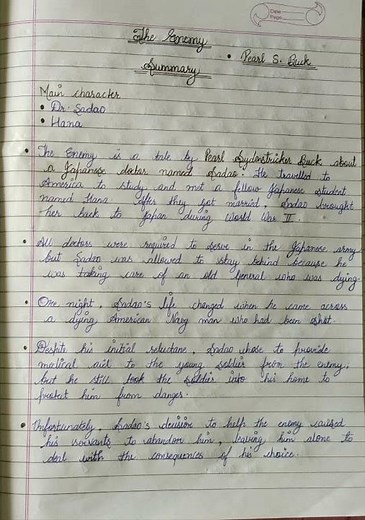 Date
Page
The Enemy
• Pearl S. Buck
Summary
Main character
• Dr. Sadao
• Hana
• The Enemy is a tale by Pearl Sydenstricker Buck about
a Japanese doctor named Sadao. He travelled to
America to study and met a fellow Japanese student
named Hana. After they got married, Sadao brought
her back to Japan during World War II.
• All doctors were required to serve in the Japanese army
but Sadao was allowed to stay behind because he
was taking care of an old general who was dying.
• One night, Sadao's life changed when he came across
a dying American Navy man who had been shot.
• Despite his initial reluctane, Sadao chose to provide
medical aid to the young soldier from the enemy,
but he still took the soldier into his home to
protect him from danger.
• Unfortunately, Sadao's decision to help the enemy caused
his servants to abandon him, leaving him alone to
deal with the consequences of his choice.